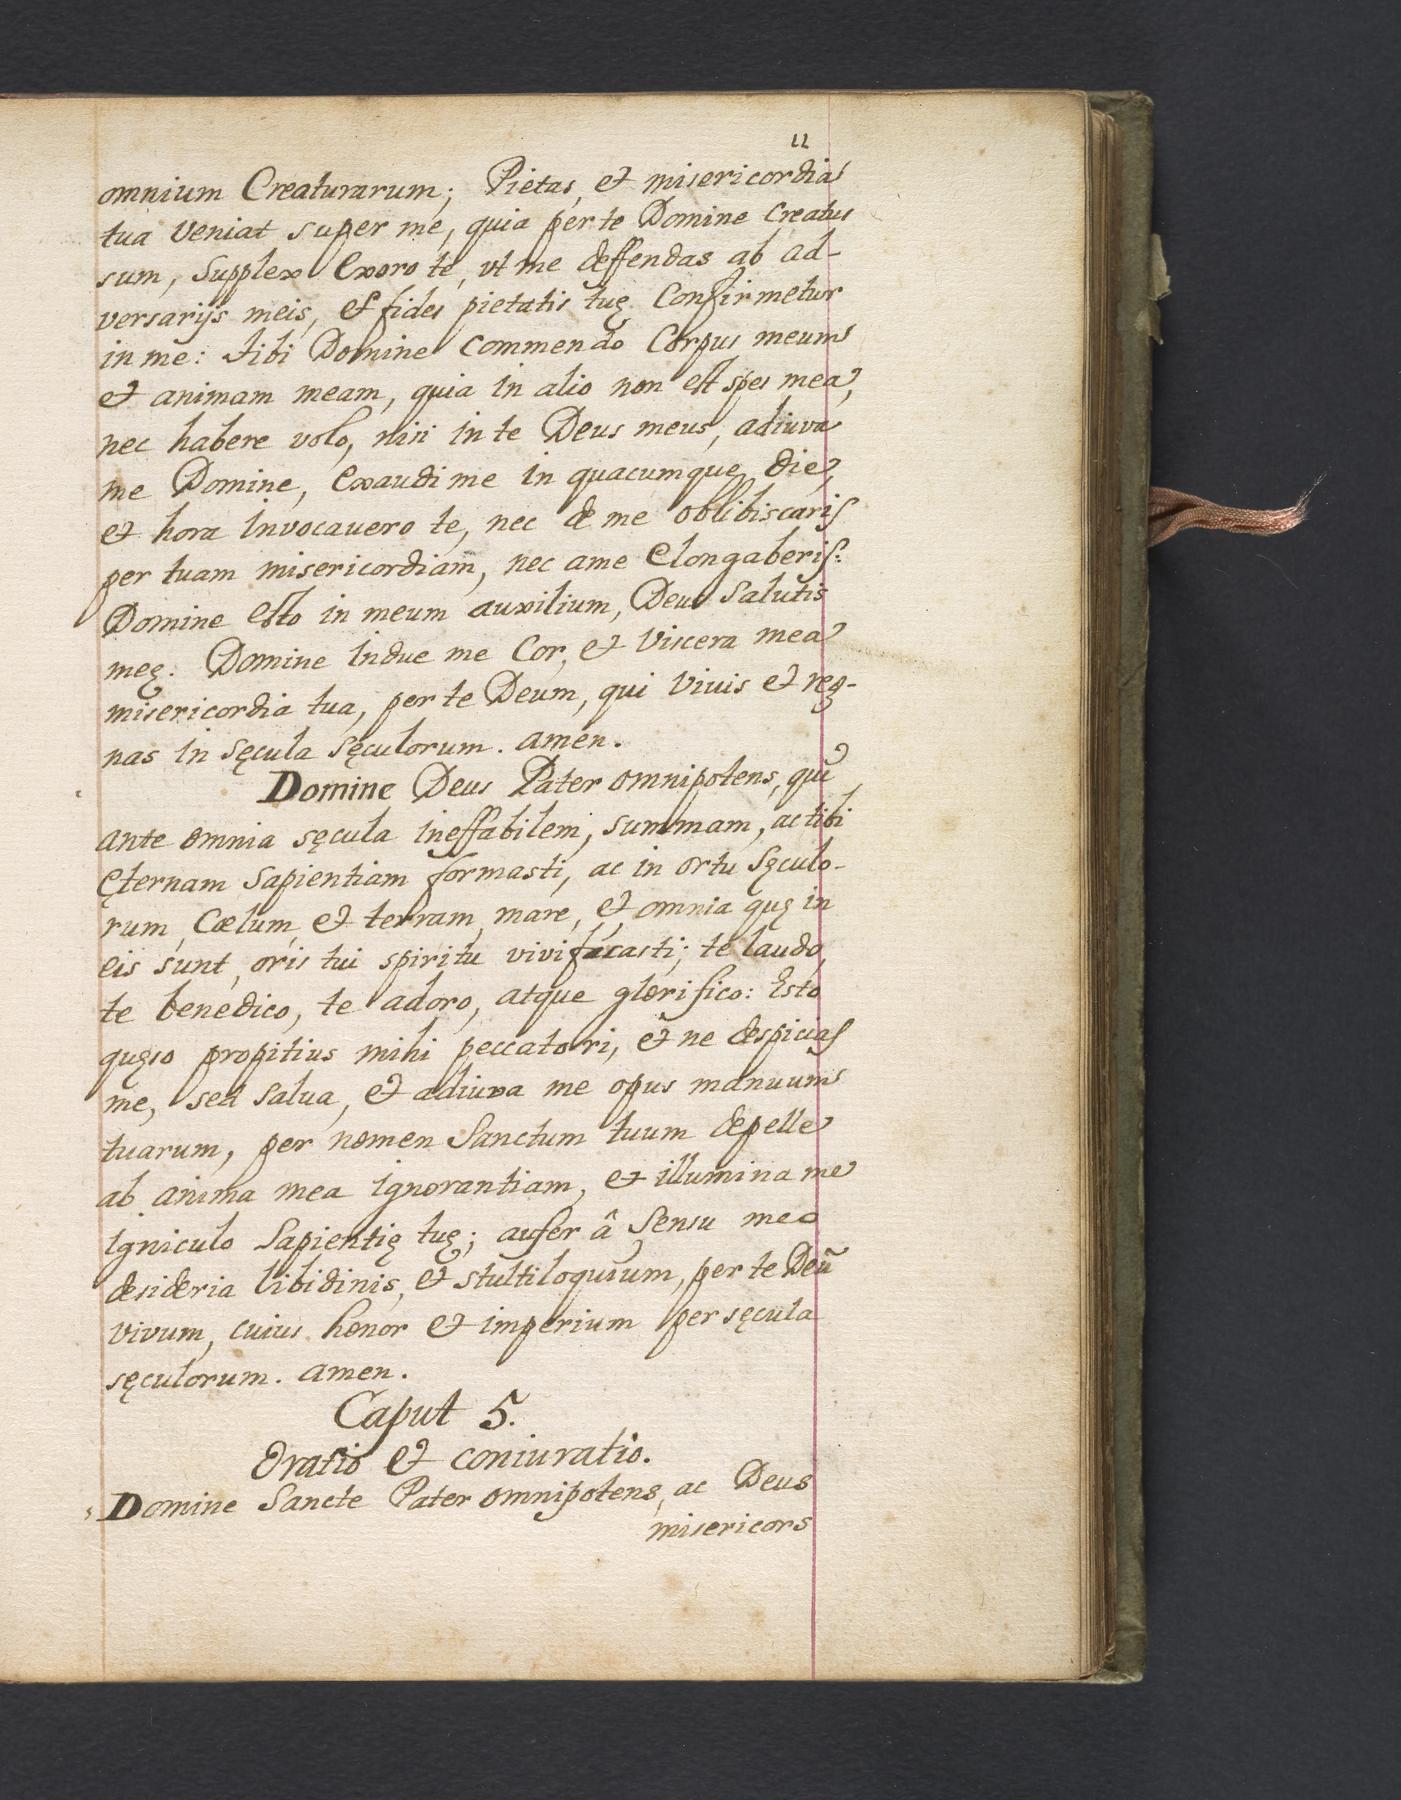 11
omnium Creaturarum; Pietas, et misericordia
tua veniat super me, quia per te Domine creatus
sum, supplex exoro te, vt me deffendas ab ad-
versarijs meis, et fides pietatis tuę confirmetur
in me: tibi Domine commendo Corpus meum
et animam meam, quia in alio non est spes mea,
nec habere volo, nisi in te Deus meus, adiuva
me Domine, exaudi me in quacumque die,
et hora invocauero te, nec de me oblibiscaris
per tuam misericordiam, nec ame elongaberis:
Domine esto in meum auxilium, Deus salutis
meę. Domine indue me Cor, et viscera mea
misericordia tua, per te Deum, qui vivis et reg-
nas in sęcula sęculorum. amen.
Domine Deus Pater omnipotens, qui
ante omnia sęcula ineffabilem, summam, ac tibi
ęternam sapientiam formasti, ac in ortu sęculo-
rum, Cœlum, et terram, mare, et omnia quę in
eis sunt, oris tui spiritu vivificasti; te laudo,
te benedico, te adoro, atque glorifico: Esto
quęso propitius mihi peccatori, et ne despicias
me, sed salua, et adiuva me opus manuum
tuarum, per nomen Sanctum tuum depelle
ab anima mea ignorantiam, et illumina me
igniculo Sapientię tuę; aufer â sensu meo
desideria libidinis, et stultiloquium, per te Deũ
vivum, cuius honor et imperium per sęcula
sęculorum. amen.
Caput 5.
Oratio et coniuratio.
Domine Sancte Pater omnipotens, ac Deus
misericors